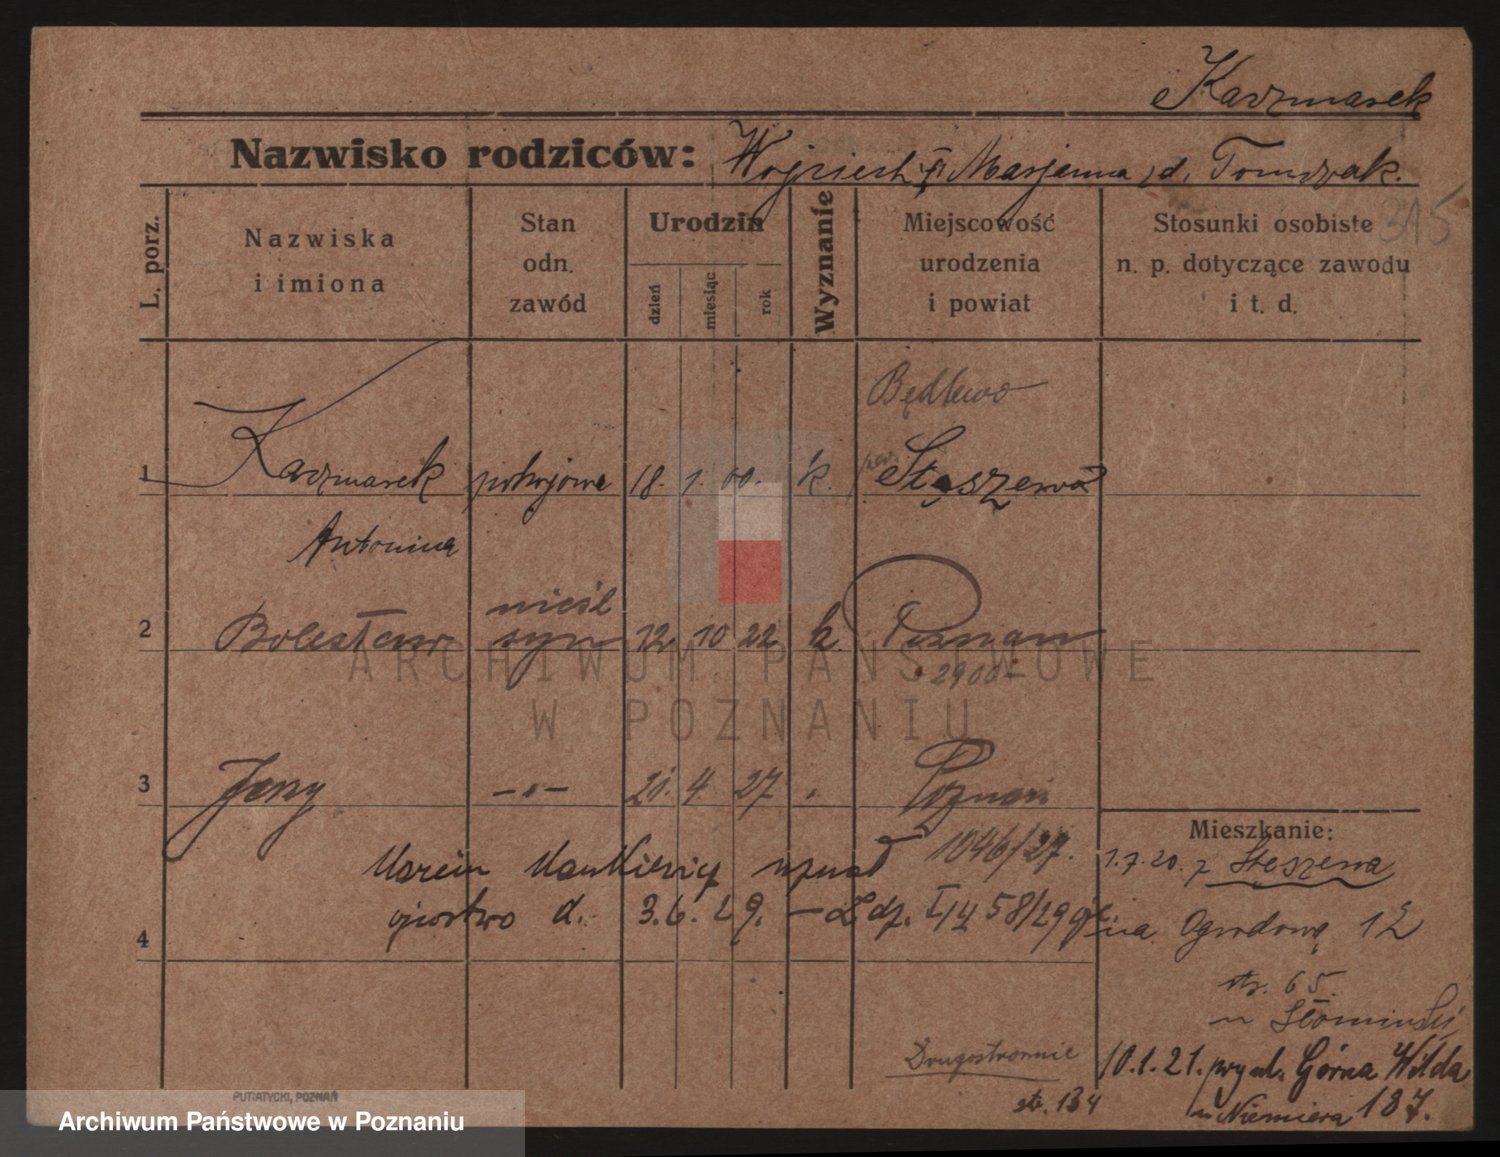 Kaczmarek
Nazwisko rodziców: Wojciech i Marjanna d. Tomczak.
315
L. porz.
Nazwiska
i imiona
Stan
odn.
zawód
Urodzin
dzień
miesiąc
rok
Wyznanie
Miejscowość
urodzenia
i powiat
Stosunki osobiste
n. p. dotyczące zawodu
i t. d.
Będlewo
1 Kaczmarek pokojowa 18. 1. 00. k. Stęszewa
Antonina
nieśl
2 Bolesław syn 12 10 22 k. Poznań
2900
3 Jerzy -"- 21. 4 27 " Poznań
1046/27.
Marcin uznał
ojcostwo d. 3.6.29. 58/29
4
Mieszkanie:
1.7.20. z Stęszewa
na Ogrodową 12
str. 65.
u Słomiński
10.1.21. Górna Wilda
u Niemiera 187.
Drugostronnie
str. 134
PUTIATYCKI, POZNAŃ
ARCHIWUM PAŃSTWOWE
W POZNANIU
Archiwum Państwowe w Poznaniu